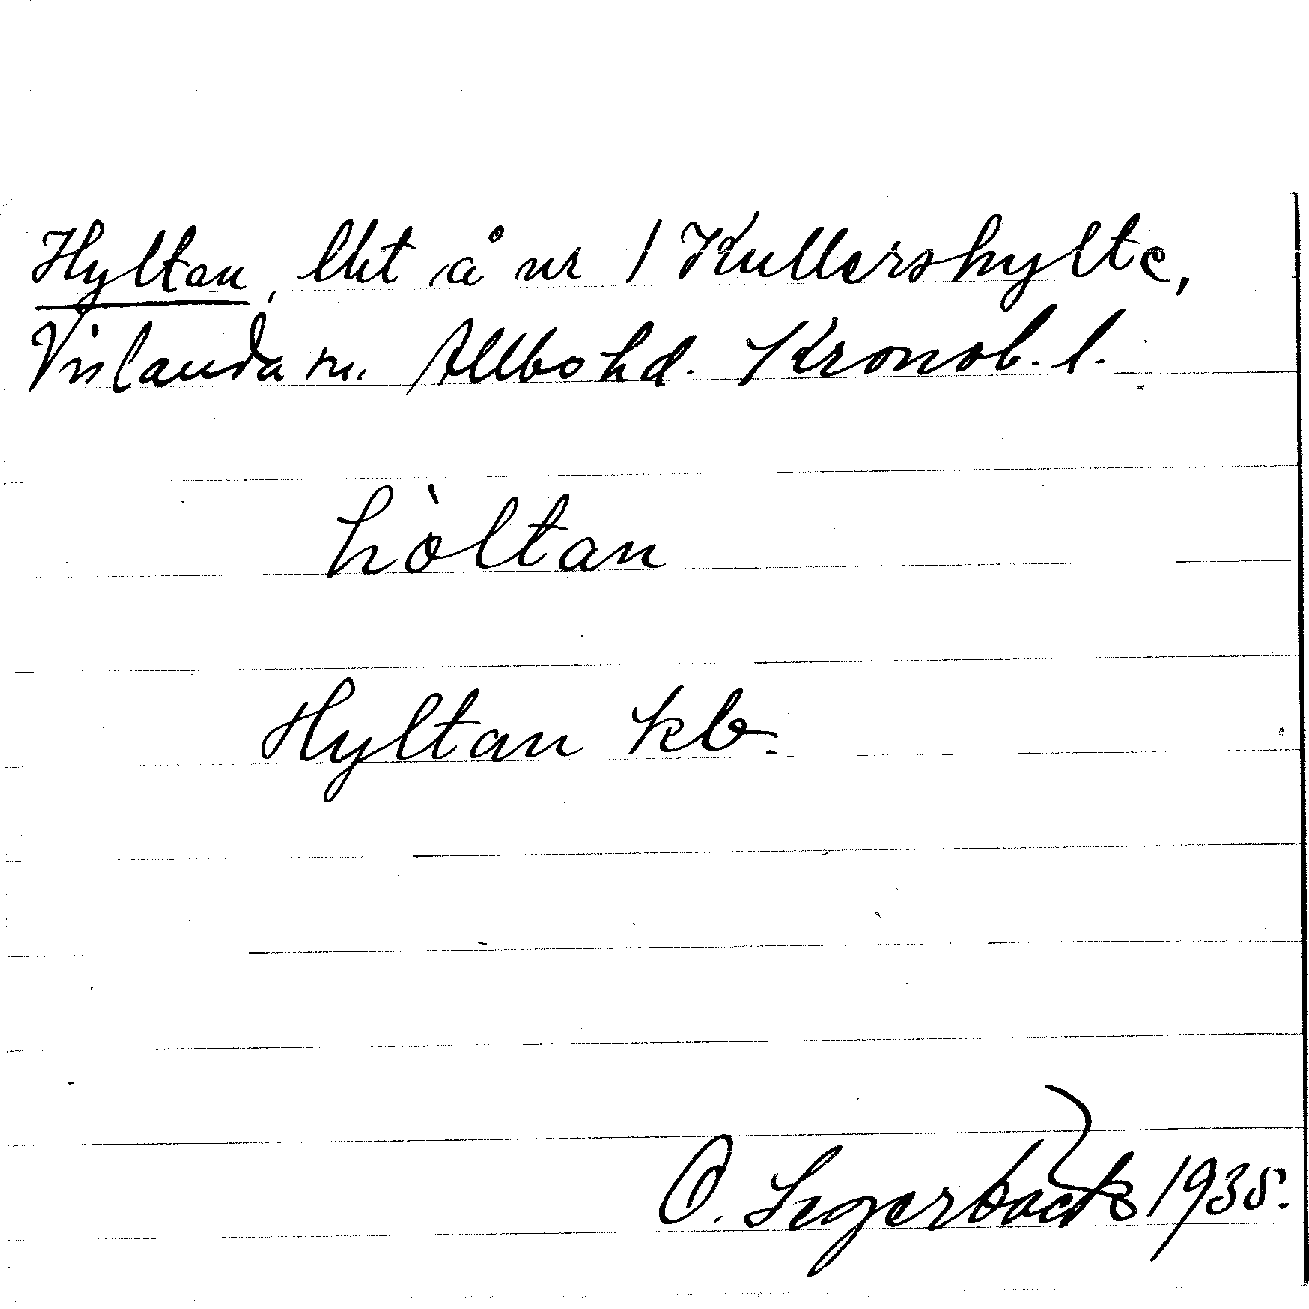 Hyltan, lht å nr 1 Kullershylte,
Vislanda sn. Allbo hd. Kronob. l.
hòltan
Hyltan kb.
O. Segerbäck 1935.